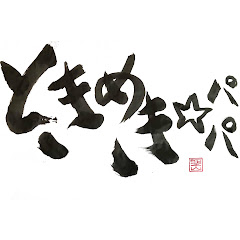 ときめき☆パパ